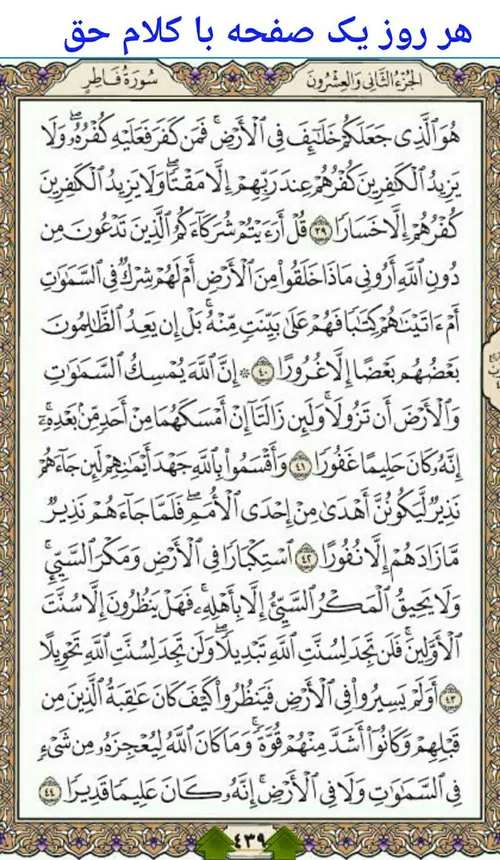 هر روز یک صفحه با کلام حق
الجزء الثانی والعشرون
سورة فاطر
هُوَ ٱلَّذِي جَعَلَكُمْ خَلَٰٓئِفَ فِي ٱلْأَرْضِ ۚ فَمَن كَفَرَ فَعَلَيْهِ كُفْرُهُۥ ۖ وَلَا
يَزِيدُ ٱلْكَٰفِرِينَ كُفْرُهُمْ عِندَ رَبِّهِمْ إِلَّا مَقْتًا ۖ وَلَا يَزِيدُ ٱلْكَٰفِرِينَ
كُفْرُهُمْ إِلَّا خَسَارًا ٣٩ قُلْ أَرَءَيْتُمْ شُرَكَآءَكُمُ ٱلَّذِينَ تَدْعُونَ مِن
دُونِ ٱللَّهِ أَرُونِي مَاذَا خَلَقُوا۟ مِنَ ٱلْأَرْضِ أَمْ لَهُمْ شِرْكٌ فِي ٱلسَّمَٰوَٰتِ
أَمْ ءَاتَيْنَٰهُمْ كِتَٰبًا فَهُمْ عَلَىٰ بَيِّنَتٍ مِّنْهُ ۚ بَلْ إِن يَعِدُ ٱلظَّٰلِمُونَ
بَعْضُهُم بَعْضًا إِلَّا غُرُورًا ٤٠ ۞ إِنَّ ٱللَّهَ يُمْسِكُ ٱلسَّمَٰوَٰتِ
وَٱلْأَرْضَ أَن تَزُولَا ۚ وَلَئِن زَالَتَآ إِنْ أَمْسَكَهُمَا مِنْ أَحَدٍ مِّنۢ بَعْدِهِۦٓ ۚ
إِنَّهُۥ كَانَ حَلِيمًا غَفُورًا ٤١ وَأَقْسَمُوا۟ بِٱللَّهِ جَهْدَ أَيْمَٰنِهِمْ لَئِن جَآءَهُمْ
نَذِيرٌ لَّيَكُونُنَّ أَهْدَىٰ مِنْ إِحْدَى ٱلْأُمَمِ ۖ فَلَمَّا جَآءَهُمْ نَذِيرٌ
مَّا زَادَهُمْ إِلَّا نُفُورًا ٤٢ ٱسْتِكْبَارًا فِي ٱلْأَرْضِ وَمَكْرَ ٱلسَّيِّئِ ۚ
وَلَا يَحِيقُ ٱلْمَكْرُ ٱلسَّيِّئُ إِلَّا بِأَهْلِهِۦ ۚ فَهَلْ يَنظُرُونَ إِلَّا سُنَّتَ
ٱلْأَوَّلِينَ ۚ فَلَن تَجِدَ لِسُنَّتِ ٱللَّهِ تَبْدِيلًا ۖ وَلَن تَجِدَ لِسُنَّتِ ٱللَّهِ تَحْوِيلًا
٤٣ أَوَلَمْ يَسِيرُوا۟ فِي ٱلْأَرْضِ فَيَنظُرُوا۟ كَيْفَ كَانَ عَٰقِبَةُ ٱلَّذِينَ مِن
قَبْلِهِمْ وَكَانُوٓا۟ أَشَدَّ مِنْهُمْ قُوَّةً ۚ وَمَا كَانَ ٱللَّهُ لِيُعْجِزَهُۥ مِن شَيْءٍ
فِي ٱلسَّمَٰوَٰتِ وَلَا فِي ٱلْأَرْضِ ۚ إِنَّهُۥ كَانَ عَلِيمًا قَدِيرًا ٤٤
٤٣٩